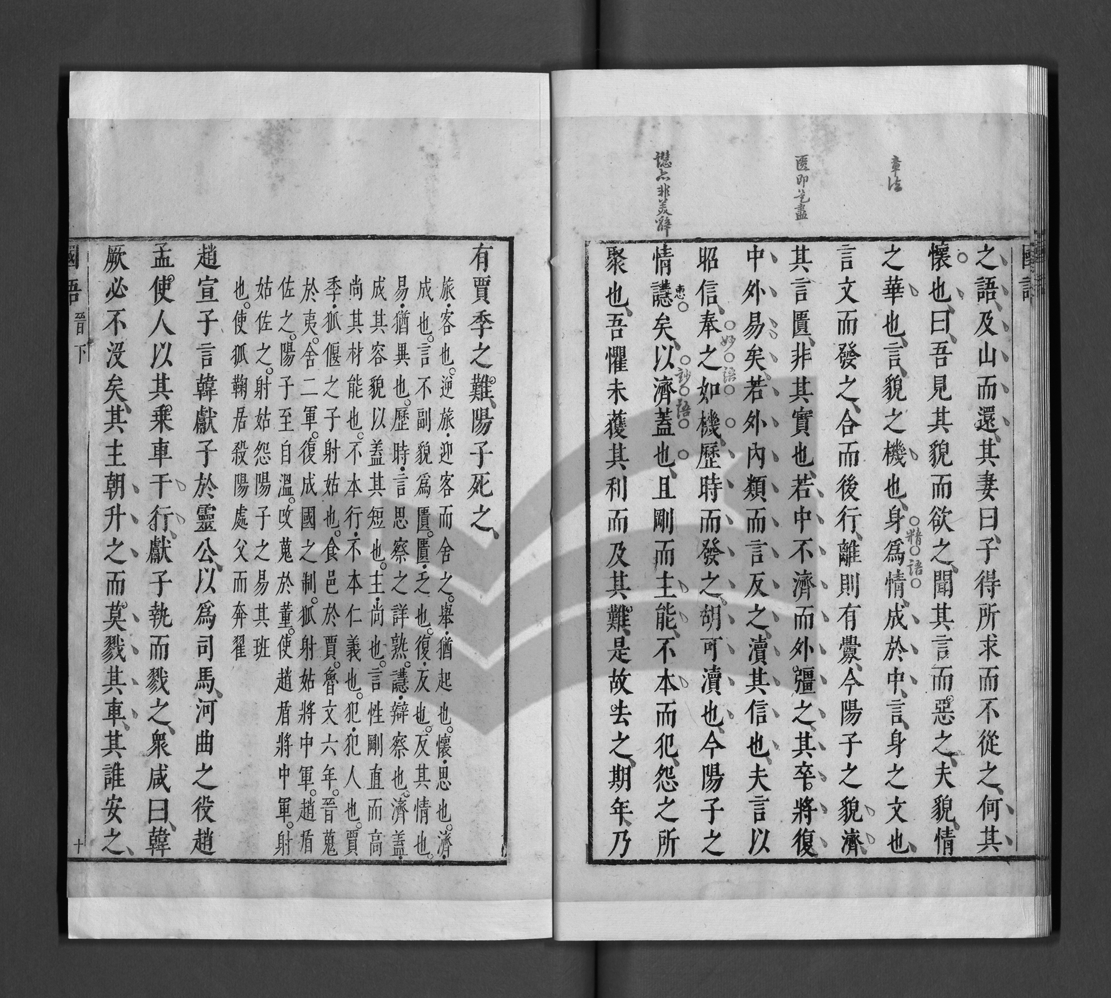 章法
匱即乏盡
譓亦非美辭
國語
之語及山而還其妻曰子得所求而不從之何其
懷也曰吾見其貌而欲之聞其言而惡之夫貌情
之華也言貌之機也身爲情成於中言身之文也
精語
言文而發之合而後行離則有釁今陽子之貌濟
其言匱非其實也若中不濟而外彊之其卒將復
中外易矣若外內類而言反之瀆其信也夫言以
昭信奉之如機歷時而發之胡可瀆也今陽子之
妙語
情譓矣以濟蓋也且剛而主能不本而犯怨之所
惠
妙語
聚也吾懼未獲其利而及其難是故去之期年乃
有賈季之難陽子死之
旅客也逆旅迎客而舍之舉猶起也懷思也濟
成也言不副貌爲匱匱乏也復反也反其情也
易猶異也歷時言思察之詳熟譓辯察也濟蓋
成其容貌以蓋其短也主尚也言性剛直而高
尚其材能也不本行不本仁義也犯犯人也賈
季狐偃之子射姑也食邑於賈魯文六年晉蒐
於夷舍二軍復成國之制狐射姑將中軍趙盾
佐之陽子至自溫改蒐於董使趙盾將中軍射
姑佐之射姑怨陽子之易其班
也使狐鞫居殺陽處父而奔翟
趙宣子言韓獻子於靈公以爲司馬河曲之役趙
孟使人以其乘車干行獻子執而戮之衆咸曰韓
厥必不沒矣其主朝升之而莫戮其車其誰安之
國語 晉下 十